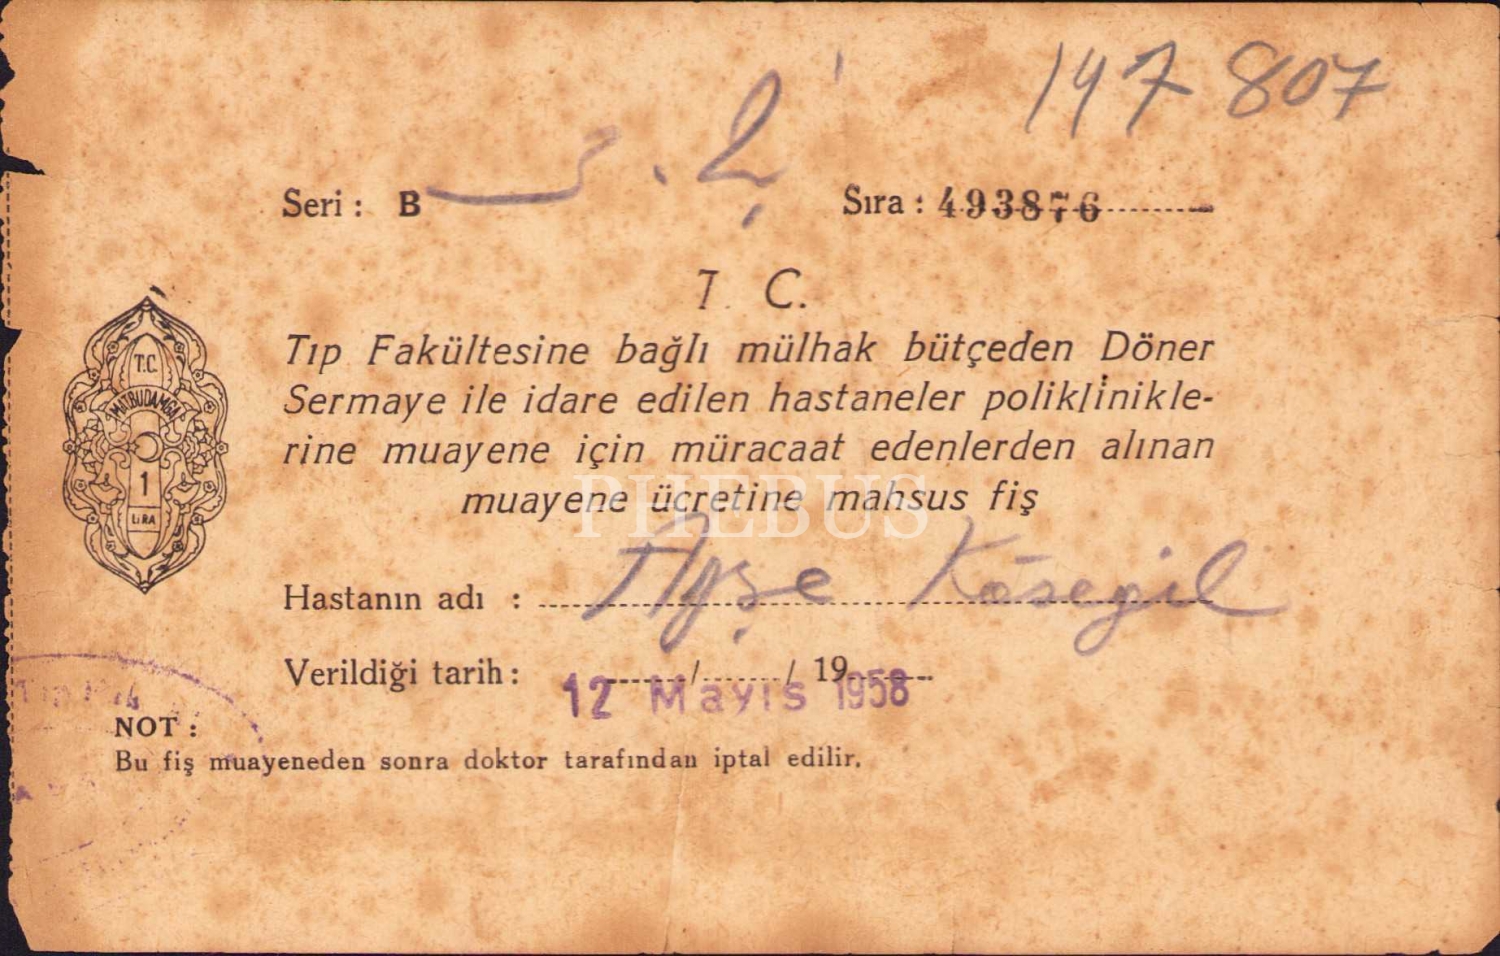 147 807
Seri : B
Sıra : 493876
T. C.
Tıp Fakültesine bağlı mülhak bütçeden Döner
Sermaye ile idare edilen hastaneler poliklinikle-
rine muayene için müracaat edenlerden alınan
muayene ücretine mahsus fiş
PHEBUS
T.C.
MATBUDAMGA
1
LİRA
Hastanın adı : Ayşe Kösegil
Verildiği tarih : / / 19
12 Mayıs 1958
NOT :
Bu fiş muayeneden sonra doktor tarafından iptal edilir.